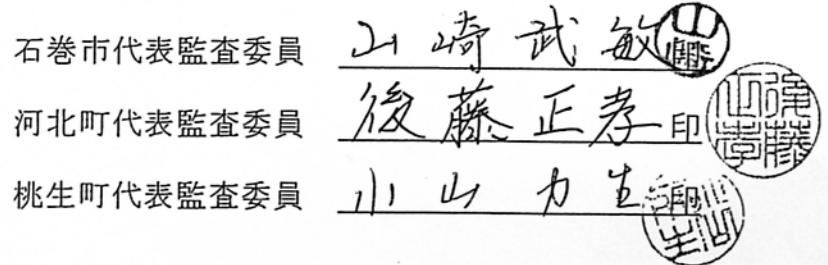 石巻市代表監査委員 山崎武敏
河北町代表監査委員 後藤正孝 印
桃生町代表監査委員 小山力生 印